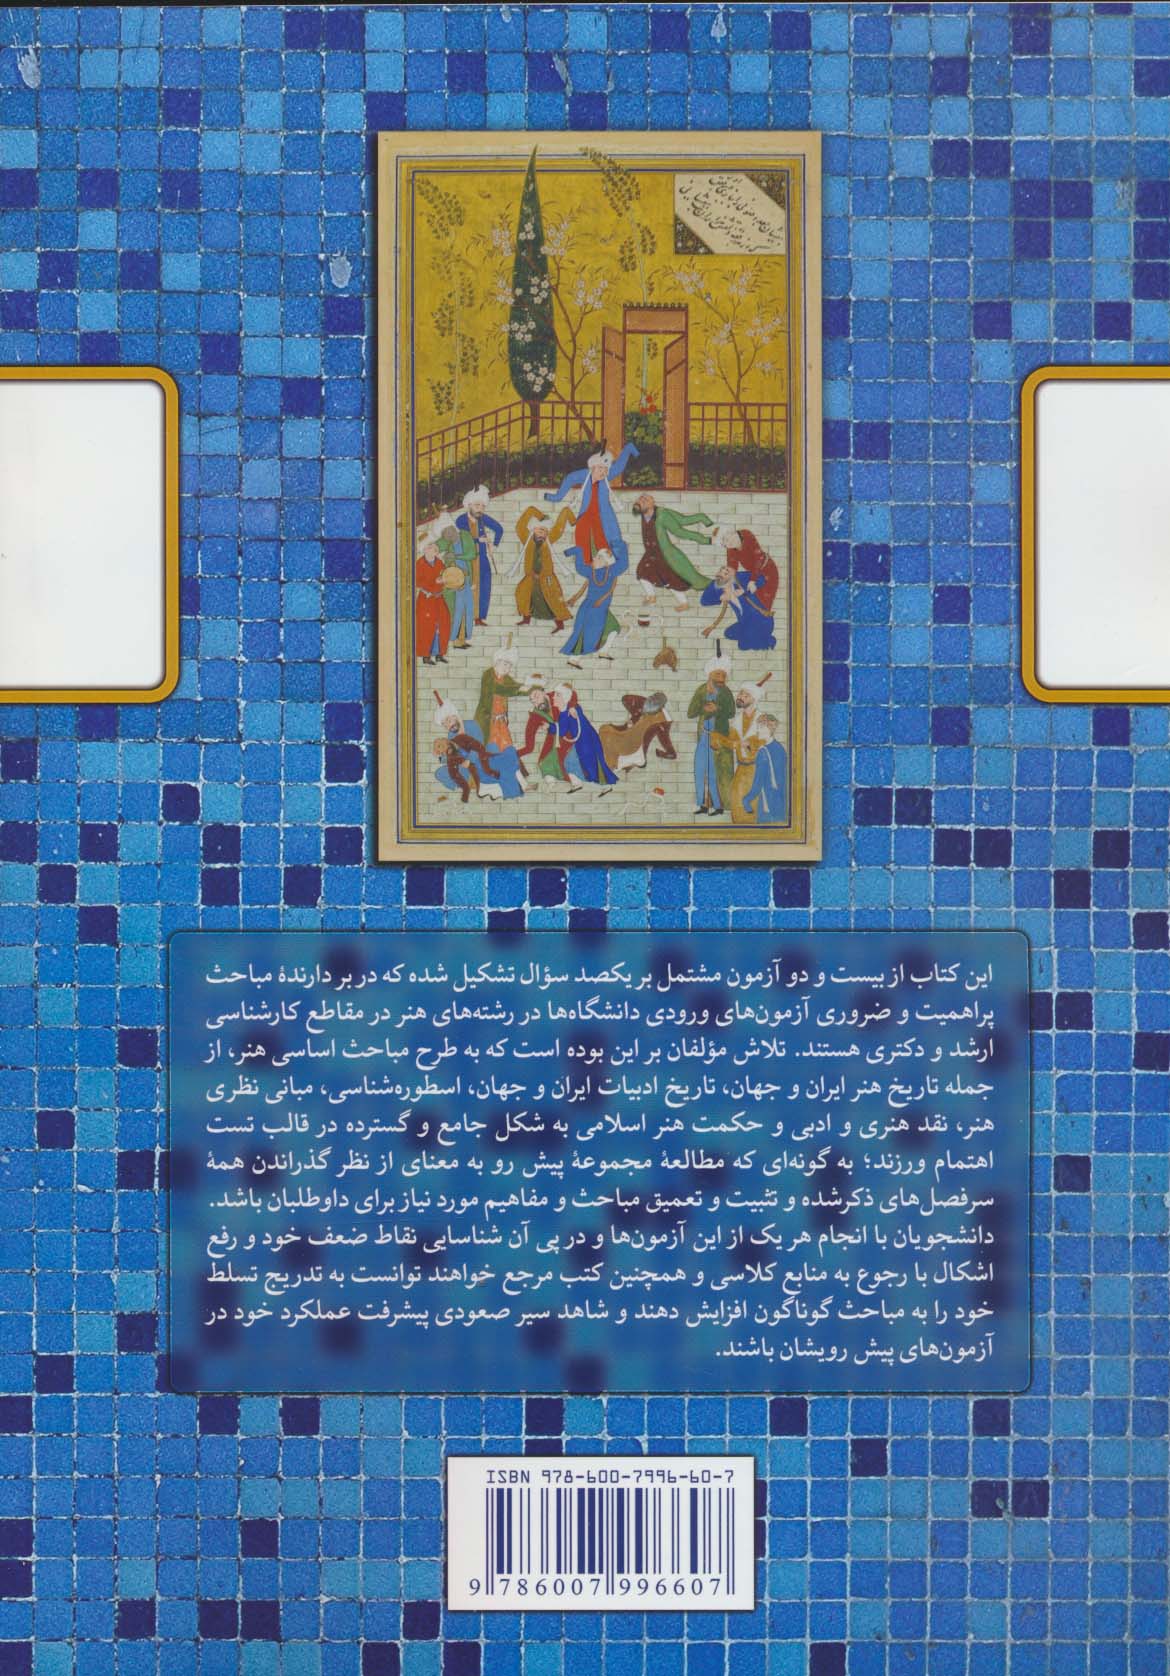 این کتاب از بیست و دو آزمون مشتمل بر یکصد سؤال تشکیل شده که در بر دارندهٔ مباحث
پراهمیت و ضروری آزمون‌های ورودی دانشگاه‌ها در رشته‌های هنر در مقاطع کارشناسی
ارشد و دکتری هستند. تلاش مؤلفان بر این بوده است که به طرح مباحث اساسی هنر، از
جمله تاریخ هنر ایران و جهان، تاریخ ادبیات ایران و جهان، اسطوره‌شناسی، مبانی نظری
هنر، نقد هنری و ادبی و حکمت هنر اسلامی به شکل جامع و گسترده در قالب تست
اهتمام ورزند؛ به گونه‌ای که مطالعهٔ مجموعهٔ پیش رو به معنای از نظر گذراندن همهٔ
سرفصل‌های ذکرشده و تثبیت و تعمیق مباحث و مفاهیم مورد نیاز برای داوطلبان باشد.
دانشجویان با انجام هر یک از این آزمون‌ها و در پی آن شناسایی نقاط ضعف خود و رفع
اشکال با رجوع به منابع کلاسی و همچنین کتب مرجع خواهند توانست به تدریج تسلط
خود را به مباحث گوناگون افزایش دهند و شاهد سیر صعودی پیشرفت عملکرد خود در
آزمون‌های پیش رویشان باشند.
ISBN 978-600-7996-60-7
9 786007 996607